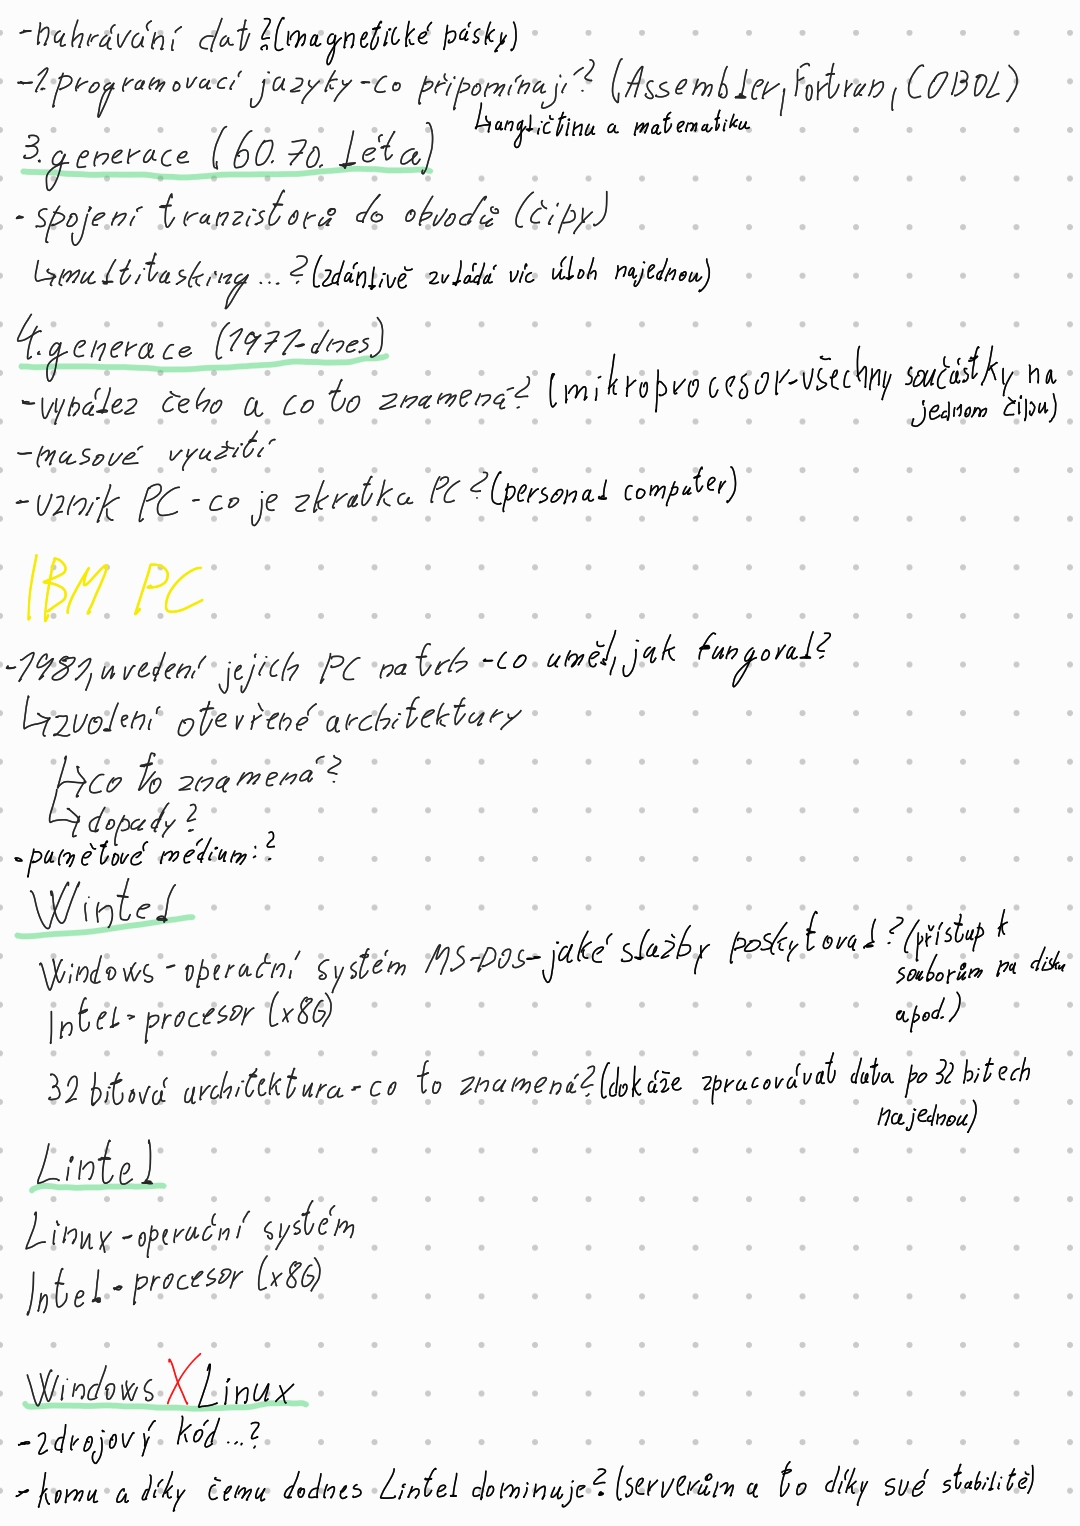 -nahrávání dat?(magnetické pásky)
-1.programovací jazyky-co připomínají? (Assembler, Fortran, COBOL)
↳angličtinu a matematiku
3.generace (60.70. léta)
- spojení tranzistorů do obvodů (čipy)
↳multitasking...?(zdánlivě zvládá víc úloh najednou)
4.generace (1971-dnes)
-vynález čeho a co to znamená? (mikroprocesor-všechny součástky na
jednom čipu)
-masové využití
-vznik PC-co je zkratka PC?(personal computer)
IBM PC
-1981, uvedení jejich PC na trh-co uměl, jak fungoval?
↳zvolení otevřené architektury
↳co to znamená?
↳dopady?
-paměťové médium:?
Wintel
Windows-operační systém MS-DOS-jaké služby poskytoval?(přístup k
souborům na disku
apod.)
Intel-procesor (x86)
32 bitová architektura-co to znamená?(dokáže zpracovávat data po 32 bitech
najednou)
Lintel
Linux-operační systém
Intel-procesor (x86)
Windows X Linux
-zdrojový kód...?
-komu a díky čemu dodnes Lintel dominuje?(serverům a to díky své stabilitě)